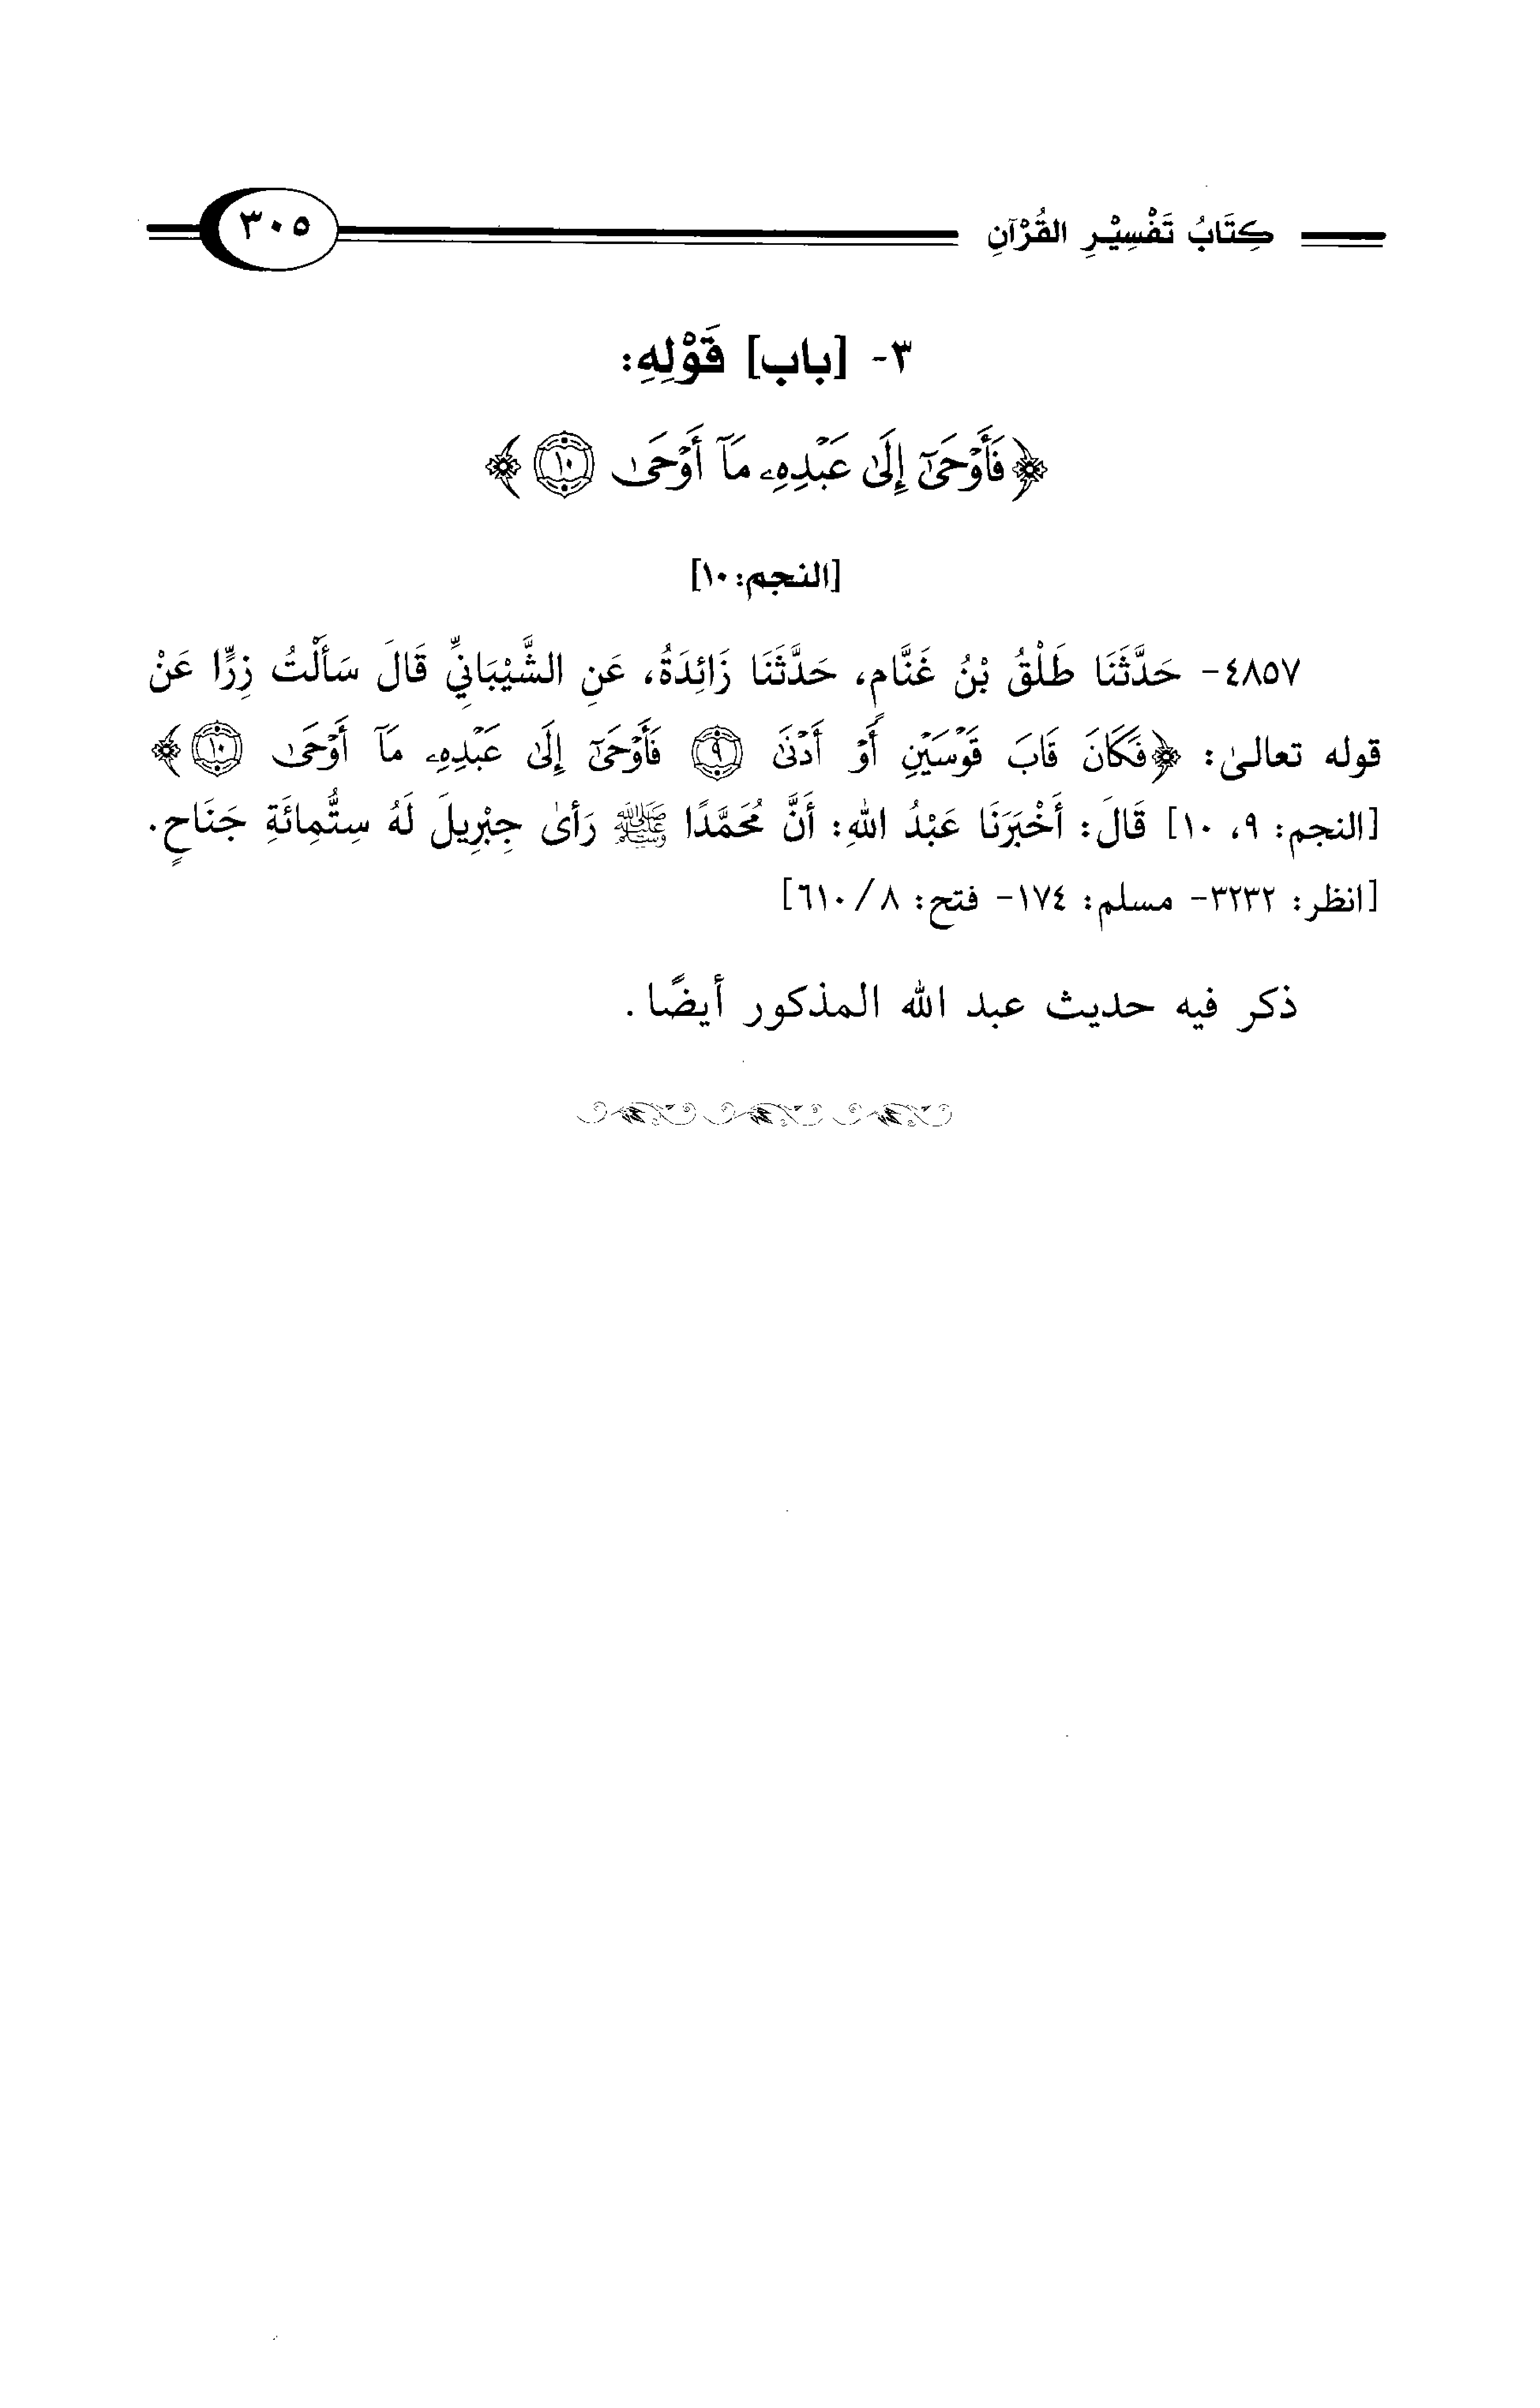 كِتَابُ تَفْسِيْرِ القُرْآنِ ٣٠٥
٣- [باب] قَوْلِهِ:
﴿فَأَوْحَىٰٓ إِلَىٰ عَبْدِهِۦ مَآ أَوْحَىٰ ١٠﴾
[النجم: ١٠]
٤٨٥٧- حَدَّثَنَا طَلْقُ بْنُ غَنَّامٍ، حَدَّثَنَا زَائِدَةُ، عَنِ الشَّيْبَانِيِّ قَالَ سَأَلْتُ زِرًّا عَنْ
قوله تعالىٰ: ﴿فَكَانَ قَابَ قَوْسَيْنِ أَوْ أَدْنَىٰ ٩ فَأَوْحَىٰٓ إِلَىٰ عَبْدِهِۦ مَآ أَوْحَىٰ ١٠﴾
[النجم: ٩، ١٠] قَالَ: أَخْبَرَنَا عَبْدُ اللهِ: أَنَّ مُحَمَّدًا ﷺ رَأىٰ جِبْرِيلَ لَهُ سِتُّمِائَةِ جَنَاحٍ.
[انظر: ٣٢٣٢- مسلم: ١٧٤- فتح: ٨/ ٦١٠]
ذكر فيه حديث عبد الله المذكور أيضًا.